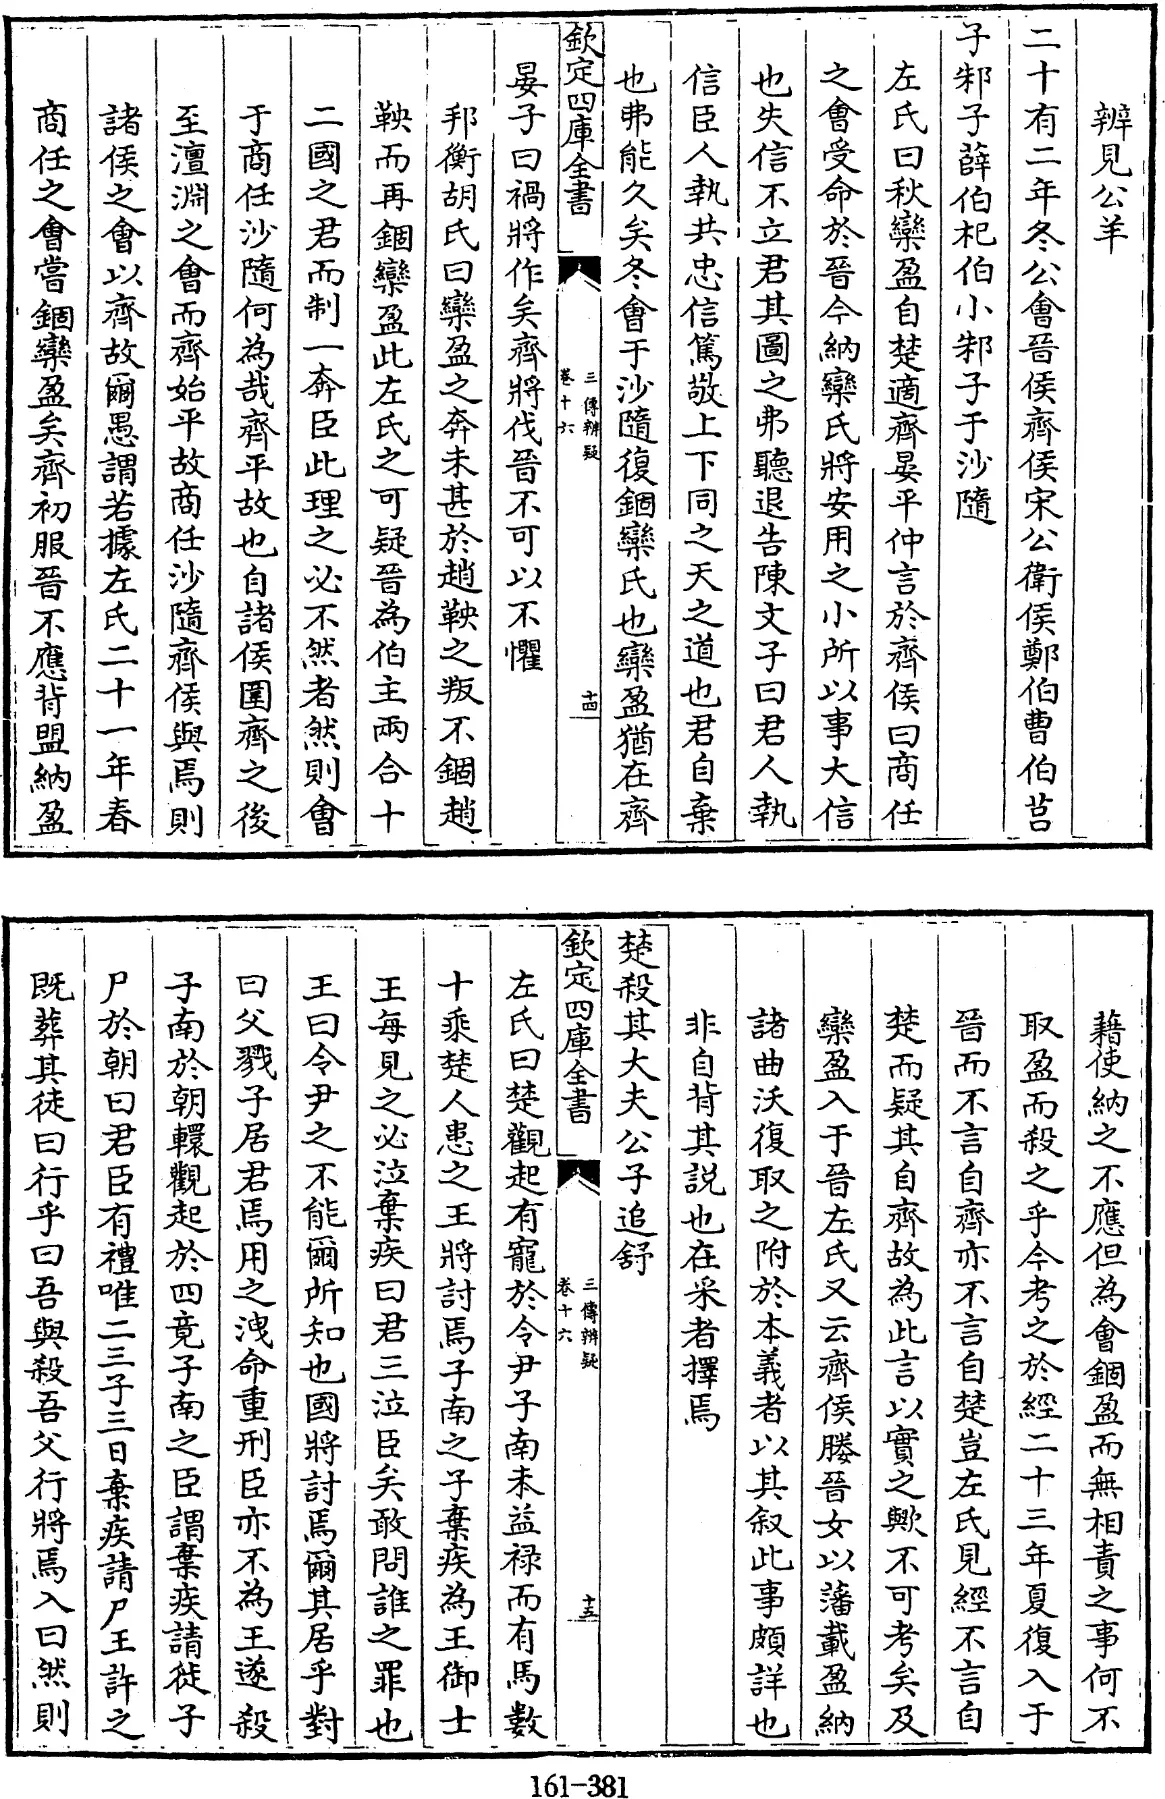 辨見公羊
二十有二年冬公會晉侯齊侯宋公衛侯鄭伯曹伯莒
子邾子薛伯杞伯小邾子于沙隨
左氏曰秋欒盈自楚適齊晏平仲言於齊侯曰商任
之會受命於晉今納欒氏將安用之小所以事大信
也失信不立君其圖之弗聽退告陳文子曰君人執
信臣人執共忠信篤敬上下同之天之道也君自棄
也弗能久矣冬會于沙隨復錮欒氏也欒盈猶在齊
欽定四庫全書
三傳辨疑
卷十六
十四
晏子曰禍將作矣齊將伐晉不可以不懼
邦衡胡氏曰欒盈之奔未甚於趙鞅之叛不錮趙
鞅而再錮欒盈此左氏之可疑晉為伯主兩合十
二國之君而制一奔臣此理之必不然者然則會
于商任沙隨何為哉齊平故也自諸侯圍齊之後
至澶淵之會而齊始平故商任沙隨齊侯與焉則
諸侯之會以齊故爾愚謂若據左氏二十一年春
商任之會嘗錮欒盈矣齊初服晉不應背盟納盈
藉使納之不應但為會錮盈而無相責之事何不
取盈而殺之乎今考之於經二十三年夏復入于
晉而不言自齊亦不言自楚豈左氏見經不言自
楚而疑其自齊故為此言以實之歟不可考矣及
欒盈入于晉左氏又云齊侯媵晉女以藩載盈納
諸曲沃復取之附於本義者以其叙此事頗詳也
非自背其說也在采者擇焉
楚殺其大夫公子追舒
欽定四庫全書
三傳辨疑
卷十六
十五
左氏曰楚觀起有寵於令尹子南未益禄而有馬數
十乘楚人患之王將討焉子南之子棄疾為王御士
王每見之必泣棄疾曰君三泣臣矣敢問誰之罪也
王曰令尹之不能爾所知也國將討焉爾其居乎對
曰父戮子居君焉用之洩命重刑臣亦不為王遂殺
子南於朝轘觀起於四竟子南之臣謂棄疾請徙子
尸於朝曰君臣有禮唯二三子三日棄疾請尸王許之
既葬其徒曰行乎曰吾與殺吾父行將焉入曰然則
161-381